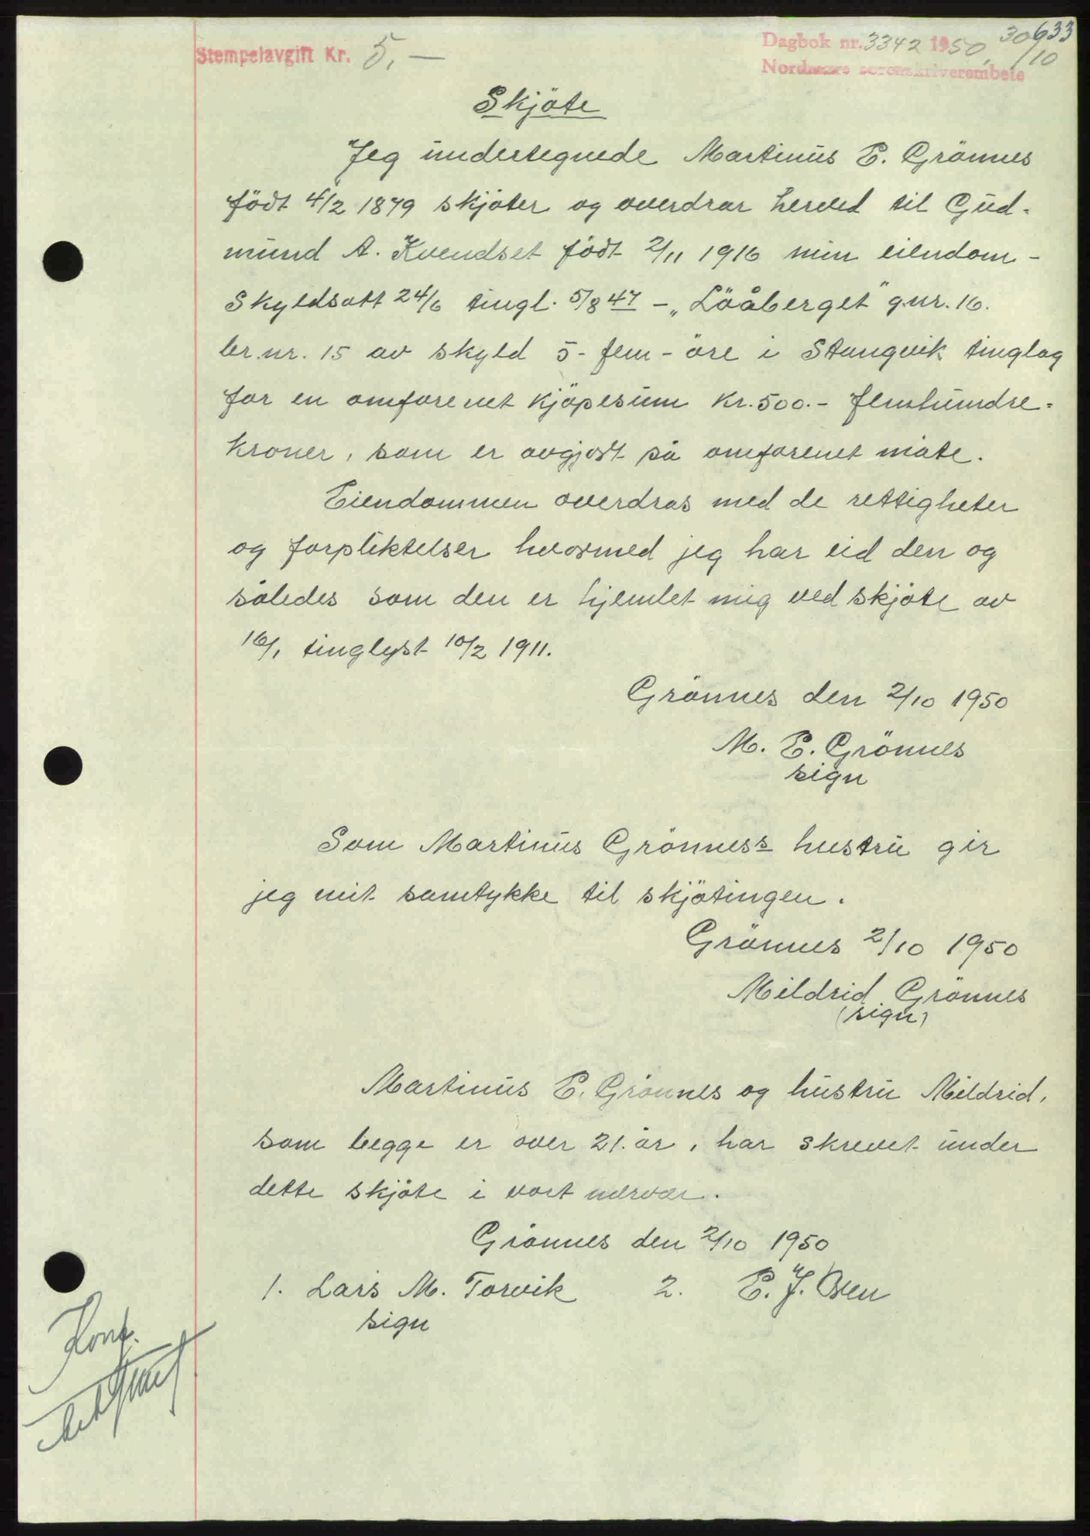 633
Stempelavgift Kr. 5,—
Dagbok nr. 3342 1950, 30/10
Nordmøre sorenskriverembete
Skjöte
Jeg undertegnede Martinus E. Grönnes
födt 4/2 1879 skjöter og overdrar herved til Gud-
mund A. Kvendset födt 2/11 1916 min eiendom -
Skyldsatt 24/6 tingl. 5/8 47 - „Löåberget" g.nr. 16.
br.nr. 15 av skyld 5 - fem - öre i Stangvik tinglag
for en omforenet kjöpesum Kr. 500.- femhundre-
kroner, som er avgjort på omforenet måte.
Eiendommen overdras med de rettigheter
og forpliktelser hvormed jeg har eid den og
således som den er hjemlet mig ved skjöte av
16/1 tinglyst 10/2 1911.
Grönnes den 2/10 1950
M. E. Grönnes
sign
Som Martinus Grönnes's hustru gir
jeg mit samtykke til skjötingen.
Grönnes 2/10 1950
Mildrid Grönnes
(sign)
Martinus E. Grönnes og hustru Mildrid,
som begge er over 21 år, har skrevet under
dette skjöte i vort nærvær.
Grönnes den 2/10 1950
1. Lars M. Torvik 2. E. J. Oven
sign
Konf.